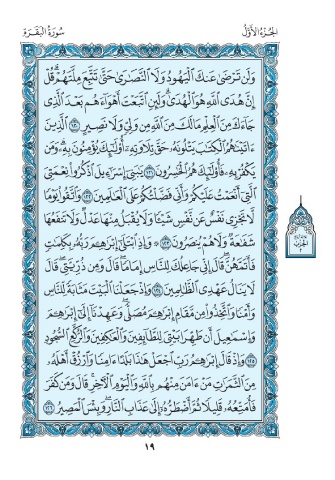 الجزء الأول
سورة البقرة
ولن ترضى عنك اليهود ولا النصرى حتى تتبع ملتهم قل
إن هدى الله هو الهدى ولئن اتبعت أهواءهم بعد الذي
جاءك من العلم ما لك من الله من ولي ولا نصير ١٢٠ الذين
ءاتينهم الكتب يتلونه حق تلاوته أولئك يؤمنون به ومن
يكفر به فأولئك هم الخسرون ١٢١ يبني إسرءيل اذكروا نعمتي
التي أنعمت عليكم وأني فضلتكم على العلمين ١٢٢ واتقوا يوما
لا تجزي نفس عن نفس شيئا ولا يقبل منها عدل ولا تنفعها
شفعة ولا هم ينصرون ١٢٣ وإذ ابتلى إبرهم ربه بكلمت
فأتمهن قال إني جاعلك للناس إماما قال ومن ذريتي قال
لا ينال عهدي الظلمين ١٢٤ وإذ جعلنا البيت مثابة للناس
وأمنا واتخذوا من مقام إبرهم مصلى وعهدنا إلى إبرهم
وإسمعيل أن طهرا بيتي للطائفين والعكفين والركع السجود
١٢٥ وإذ قال إبرهم رب اجعل هذا بلدا ءامنا وارزق أهله
من الثمرت من ءامن منهم بالله واليوم الآخر قال ومن كفر
فأمتعه قليلا ثم أضطره إلى عذاب النار وبئس المصير ١٢٦
١٩